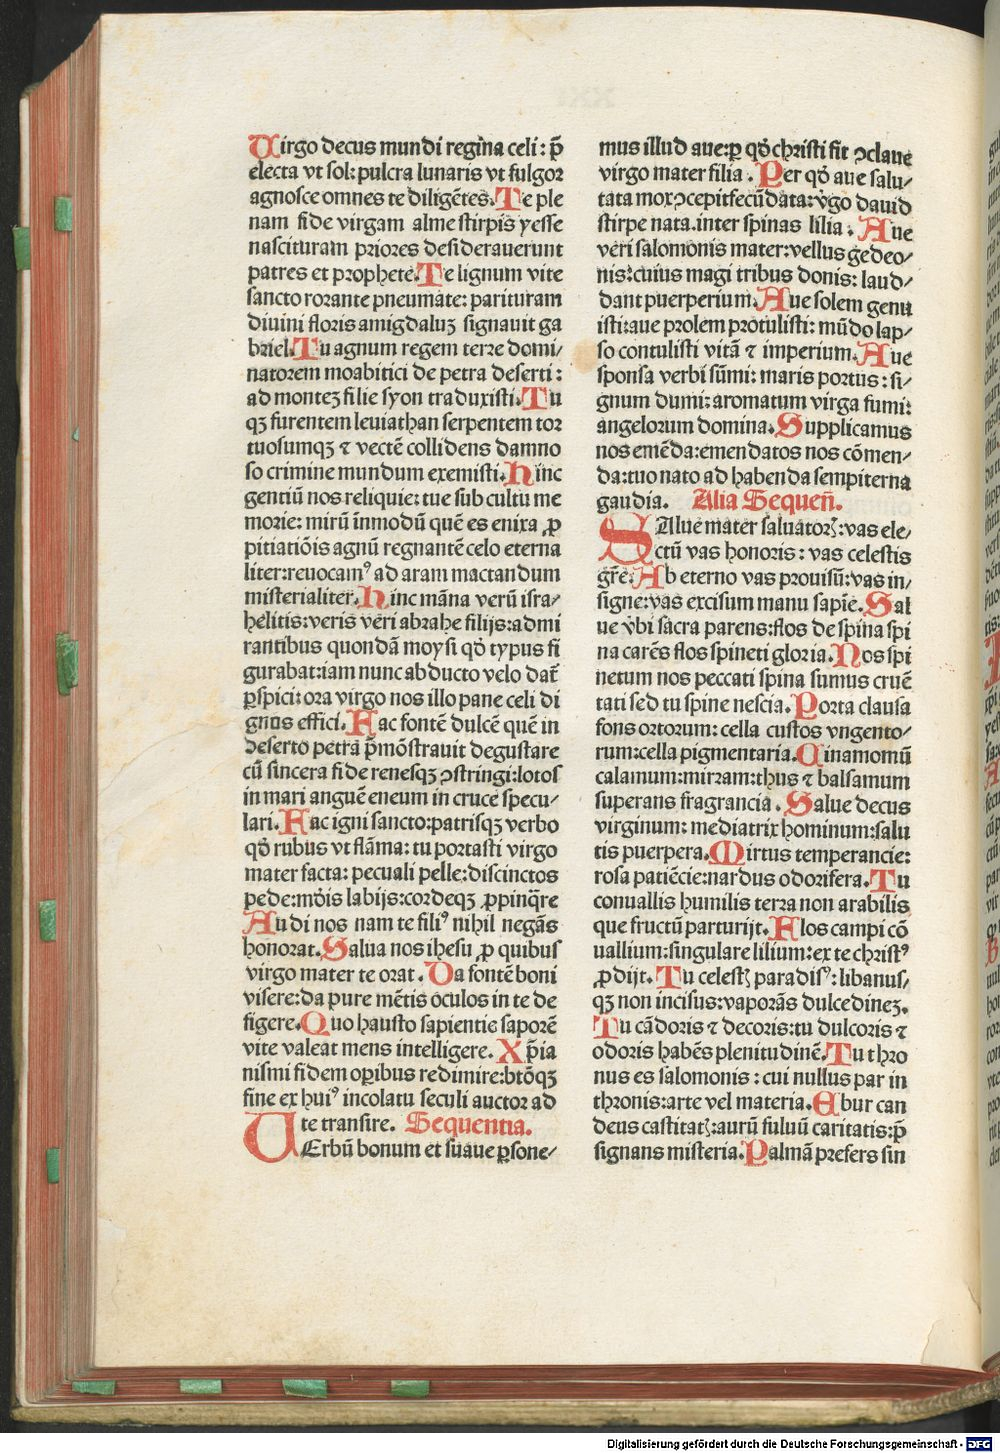 Uirgo decus mundi regina celi: p̄
electa vt sol: pulcra lunaris vt fulgor
agnosce omnes te diligētes. Te ple
nam fide virgam alme stirpis yesse
nascituram priores desiderauerunt
patres et prophete. Te lignum vite
sancto rorante pneumate: parituram
diuini floris amigdaluʒ signauit ga
briel. Tu agnum regem terre domi/
natorem moabitici de petra deserti:
ad monteʒ filie syon traduxisti. Tu
qʒ furentem leuiathan serpentem tor
tuosumqʒ ⁊ vectē collidens damno
so crimine mundum exemisti. Hinc
gentiū nos reliquie: tue sub cultu me
morie: mirū inmodū quē es enixa ꝓ
pitiatiōis agnū regnantē celo eterna
liter: reuocamꝰ ad aram mactandum
misterialiter. Hinc māna verū isra/
helitis: veris veri abrahe filijs: admi
rantibus quondā moysi qō typus fi
gurabat: iam nunc abducto velo dat̄
ꝑspici: ora virgo nos illo pane celi di
gnos effici. Fac fontē dulcē quē in
deserto petra p̄mōstrauit degustare
cū sincera fide renesqʒ ꝯstringi: lotos
in mari anguē eneum in cruce specu/
lari. Fac igni sancto: patrisqʒ verbo
qō rubus vt flāma: tu portasti virgo
mater facta: pecuali pelle: discinctos
pede: mōis labijs: cordeqʒ ꝓpinq̄re
Audi nos nam te filiꝰ nihil negās
honorat. Salua nos ihesu ꝓ quibus
virgo mater te orat. Da fontē boni
visere: da pure mētis oculos in te de
figere. Quo hausto sapientie saporē
vite valeat mens intelligere. Xp̄ia
nismi fidem oꝑibus redimire: btōqʒ
fine ex huiꝰ incolatu seculi auctor ad
te transire. Sequentia.
UErbū bonum et suaue ꝑsone/
mus illud aue: ꝑ qō christi fit ꝯclaue
virgo mater filia. Per qō aue salu/
tata mox ꝯcepit fecūdata: v̄go dauid
stirpe nata. inter spinas lilia. Aue
veri salomonis mater: vellus gedeo/
nis: cuius magi tribus donis: laud/
dant puerperium. Aue solem genu
isti: aue prolem protulisti: mūdo lap/
so contulisti vitā ⁊ imperium. Aue
sponsa verbi sūmi: maris portus: si/
gnum dumi: aromatum virga fumi:
angelorum domina. Supplicamus
nos emēda: emendatos nos cōmen/
da: tuo nato ad habenda sempiterna
gaudia. Alia Sequen̄.
SAlue mater saluatorꝭ: vas ele/
ctū vas honoris: vas celestis
gr̄e: Ab eterno vas prouisū: vas in/
signe: vas excisum manu sapīe. Sal
ue v̄bi sacra parens: flos de spina spi
na carēs flos spineti gloria. Nos spi
netum nos peccati spina sumus cruē
tati sed tu spine nescia. Porta clausa
fons ortorum: cella custos vngento/
rum: cella pigmentaria. Cinamomū
calamum: mirram: thus ⁊ balsamum
superans fragrancia. Salue decus
virginum: mediatrix hominum: salu
tis puerpera. Mirtus temperancie:
rosa patiēcie: nardus odorifera. Tu
conuallis humilis terra non arabilis
que fructū parturijt. Flos campi cō
uallium: singulare lilium: ex te christꝰ
ꝓdijt. Tu celestꝭ paradisꝰ: libanus/
qʒ non incisus: vaporās dulcedineʒ.
Tu cādoris ⁊ decoris: tu dulcoris ⁊
odoris habēs plenitudinē. Tu thro
nus es salomonis: cui nullus par in
thronis: arte vel materia. Ebur can
deus castitatꝭ: aurū fuluū caritatis: p̄
signans misteria. Palmā prefers sin
Digitalisierung gefördert durch die Deutsche Forschungsgemeinschaft - DFG